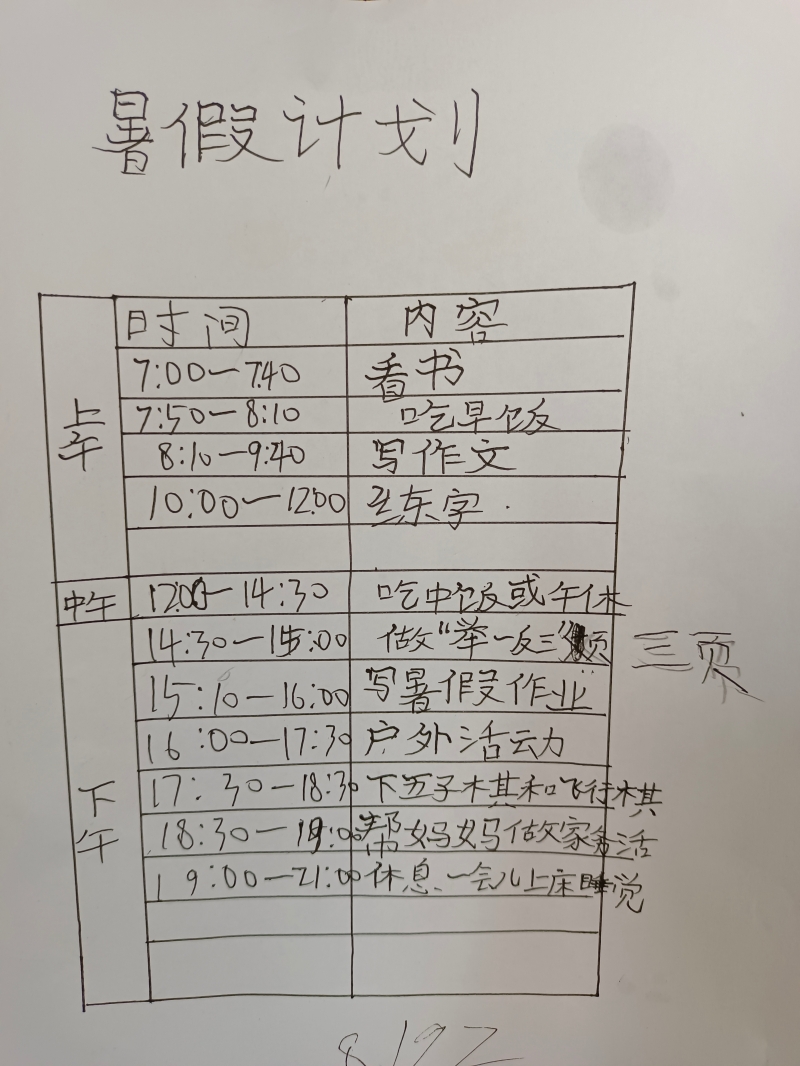 暑假计划
时间 内容
上午
7:00—7:40 看书
7:50—8:10 吃早饭
8:10—9:40 写作文
10:00—12:00 练字
中午 12:00—14:30 吃中饭或午休
14:30—15:00 做"举一反三" 三页
15:10—16:00 写暑假作业
16:00—17:30 户外活动
下午
17:30—18:30 下五子棋和飞行棋
18:30—19:00 帮妈妈做家务活
19:00—21:00 休息一会儿上床睡觉